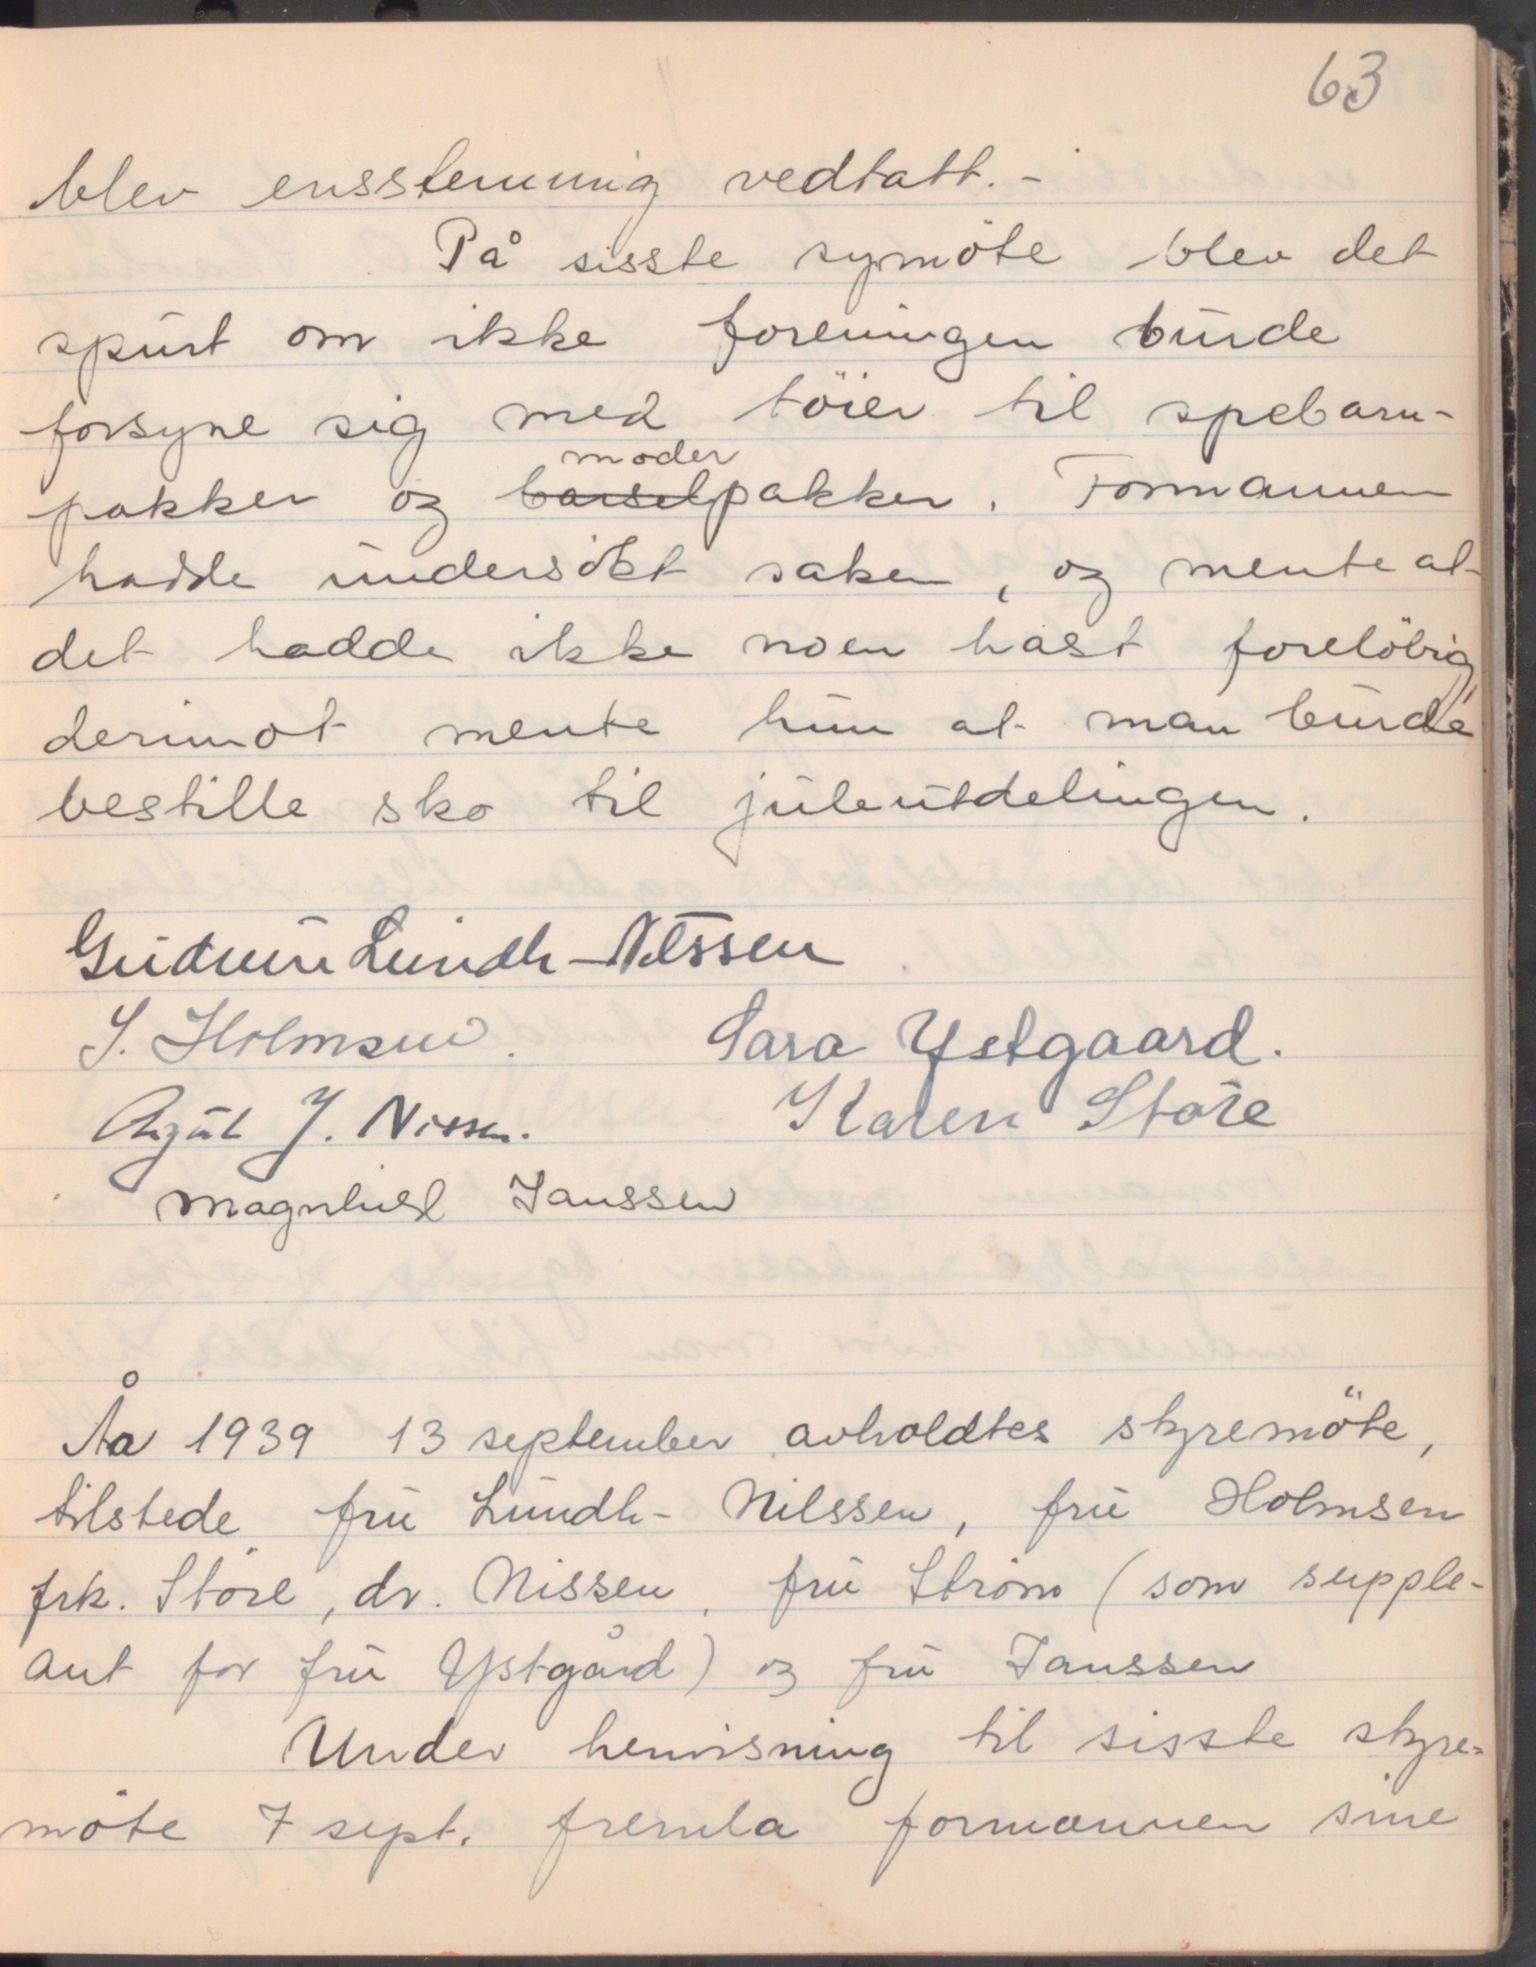 63
blev ensstemmig vedtatt. -
På sisste symöte blev det
spurt om ikke foreningen burde
forsyne sig med töier til spebarn-
moder
pakker og barselpakker. Formannen
hadde undersökt saken, og mente at
det hadde ikke noen hast forelöbig,
derimot mente hun at man burde
bestille sko til juleutdelingen.
Gudrun Lundh-Nilssen
S. Holmsen. Sara Ystgaard.
Aagot J. Nissen. Karen Støre
Magnhild Janssen
År 1939 13 september avholdtes styremöte,
tilstede fru Lundh-Nilssen, fru Holmsen
frk. Störe, dr. Nissen, fru Ström (som supple-
ant for fru Ystgård) og fru Janssen
Under henvisning til sisste styre-
möte 7 sept. fremla formannen sine